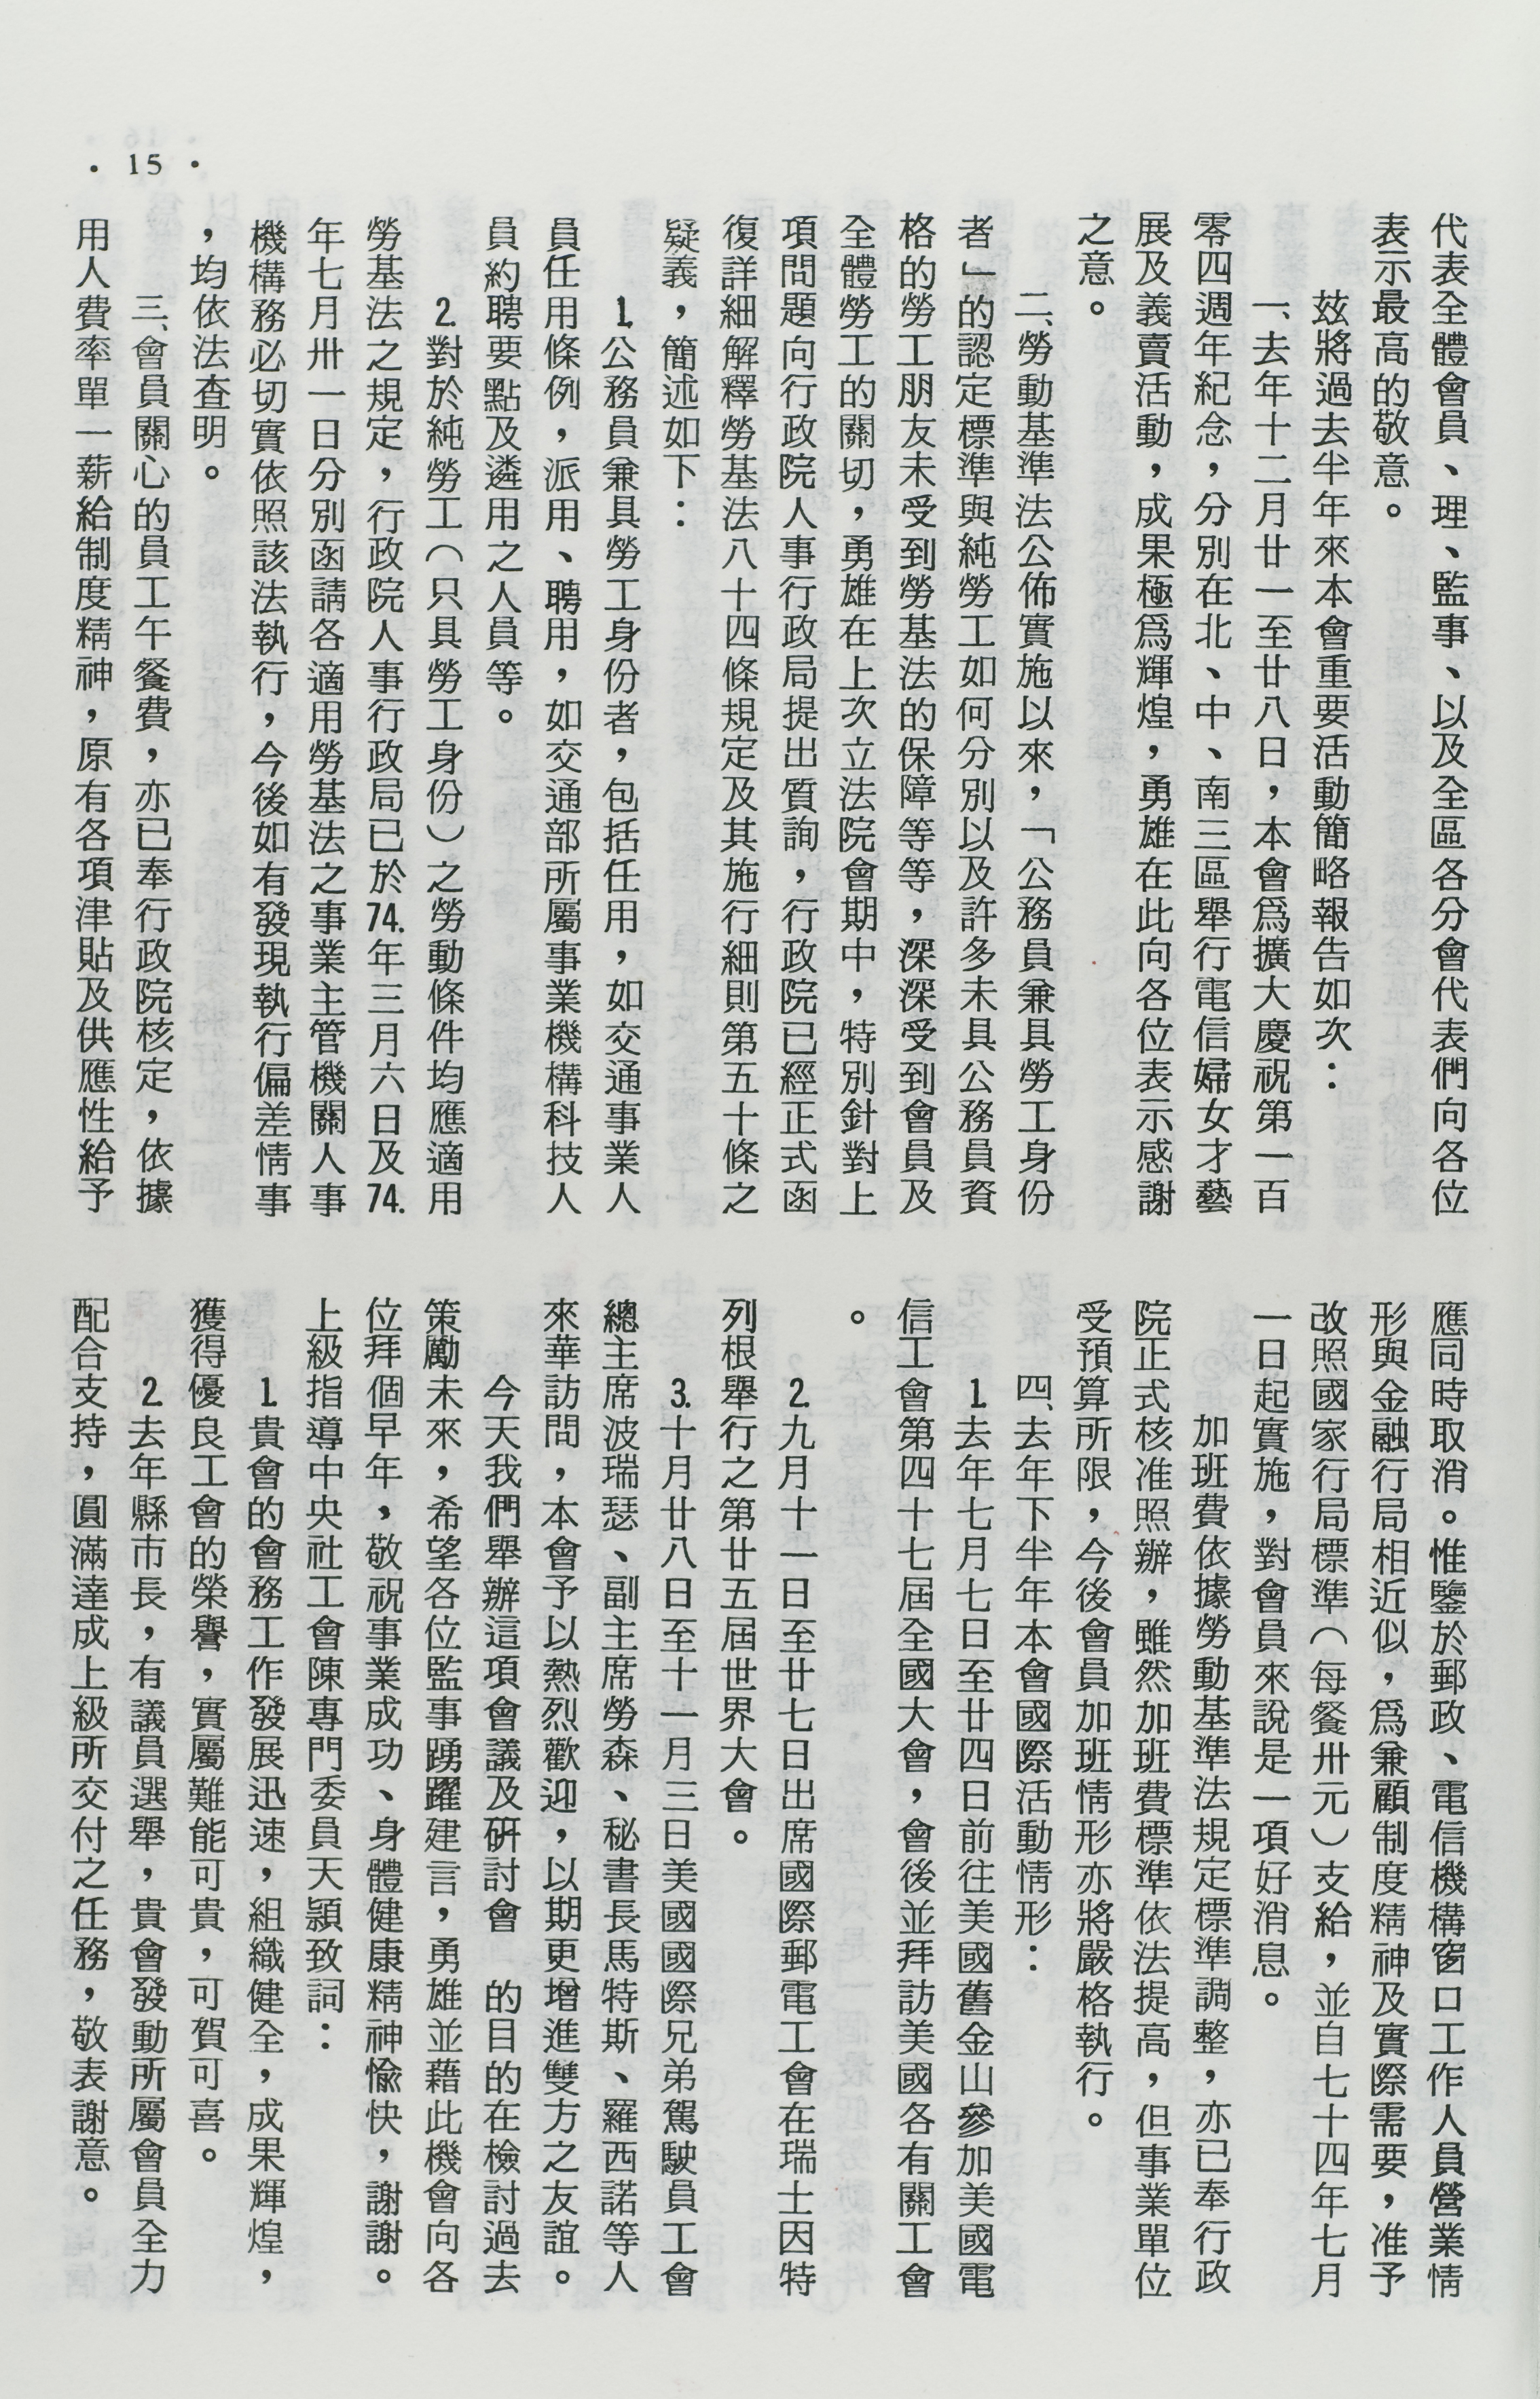 代表全體會員、理、監事、以及全區各分會代表們向各位
表示最高的敬意。
茲將過去半年來本會重要活動簡略報告如次：
一、去年十二月廿一至廿八日，本會爲擴大慶祝第一百
零四週年紀念，分別在北、中、南三區舉行電信婦女才藝
展及義賣活動，成果極爲輝煌，勇雄在此向各位表示感謝
之意。
二、勞動基準法公佈實施以來，「公務員兼具勞工身份
者」的認定標準與純勞工如何分別以及許多未具公務員資
格的勞工朋友未受到勞基法的保障等等，深深受到會員及
全體勞工的關切，勇雄在上次立法院會期中，特別針對上
項問題向行政院人事行政局提出質詢，行政院已經正式函
復詳細解釋勞基法八十四條規定及其施行細則第五十條之
疑義，簡述如下：
1.公務員兼具勞工身份者，包括任用，如交通事業人
員任用條例，派用、聘用，如交通部所屬事業機構科技人
員約聘要點及遴用之人員等。
2.對於純勞工（只具勞工身份）之勞動條件均應適用
勞基法之規定，行政院人事行政局已於74.年三月六日及74.
年七月卅一日分別函請各適用勞基法之事業主管機關人事
機構務必切實依照該法執行，今後如有發現執行偏差情事
，均依法查明。
三、會員關心的員工午餐費，亦已奉行政院核定，依據
用人費率單一薪給制度精神，原有各項津貼及供應性給予
應同時取消。惟鑒於郵政、電信機構窗口工作人員營業情
形與金融行局相近似，爲兼顧制度精神及實際需要，准予
改照國家行局標準（每餐卅元）支給，並自七十四年七月
一日起實施，對會員來說是一項好消息。
加班費依據勞動基準法規定標準調整，亦已奉行政
院正式核准照辦，雖然加班費標準依法提高，但事業單位
受預算所限，今後會員加班情形亦將嚴格執行。
四、去年下半年本會國際活動情形：
1.去年七月七日至廿四日前往美國舊金山參加美國電
信工會第四十七屆全國大會，會後並拜訪美國各有關工會
。
2.九月十一日至廿七日出席國際郵電工會在瑞士因特
列根舉行之第廿五屆世界大會。
3.十月廿八日至十一月三日美國國際兄弟駕駛員工會
總主席波瑞瑟、副主席勞森、秘書長馬特斯、羅西諾等人
來華訪問，本會予以熱烈歡迎，以期更增進雙方之友誼。
今天我們舉辦這項會議及硏討會　的目的在檢討過去
策勵未來，希望各位監事踴躍建言，勇雄並藉此機會向各
位拜個早年，敬祝事業成功、身體健康精神愉快，謝謝。
上級指導中央社工會陳專門委員天顥致詞：
1.貴會的會務工作發展迅速，組織健全，成果輝煌，
獲得優良工會的榮譽，實屬難能可貴，可賀可喜。
2.去年縣市長，有議員選舉，貴會發動所屬會員全力
配合支持，圓滿達成上級所交付之任務，敬表謝意。
• 15 •